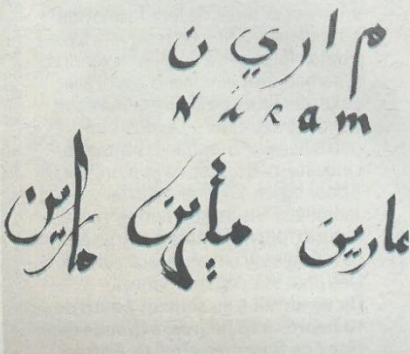 م ا ر ي ن
N i r a m
مارين مارين مارين